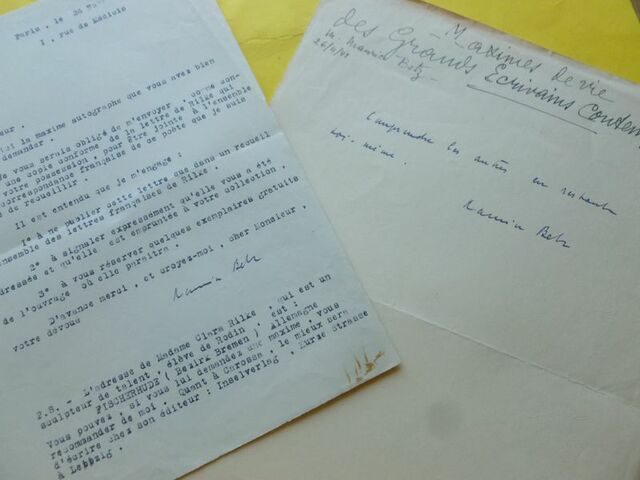 Paris, le 26
1, rue de Médicis
eur,
ici la maxime autographe que vous avez bien
demander.
Je vous serais obligé de m'envoyer, comme con-
une copie conforme de la lettre de Rilke qui
votre possession, pour être jointe à l'ensemble
correspondance française de ce poète que je suis
de recueillir.
Il est entendu que je m'engage :
à ne publier cette lettre que dans un recueil
ensemble des lettres françaises de Rilke.
2° à signaler expressément qu'elle vous a été
adressée et qu'elle est empruntée à votre collection.
3° à vous réserver quelques exemplaires gratuits
de l'ouvrage où elle paraîtra.
D'avance merci, et croyez-moi, cher Monsieur,
votre dévoué
Maurice Betz
P.S. - L'adresse de Madame Clara Rilke, qui est un
sculpteur de talent, élève de Rodin, est :
FISCHERHUDE (Bezirk Bremen) Allemagne
Vous pouvez, si vous lui demandez une maxime, vous
recommander de moi. Quant à Carossa, le mieux sera
d'écrire chez son éditeur : Inselverlag, Kurze Strasse
à Leipzig.
- Maximes de vie
des Grands Ecrivains Contem
M. Maurice Betz -
Comprendre les autres en restant
soi-même.
Maurice Betz